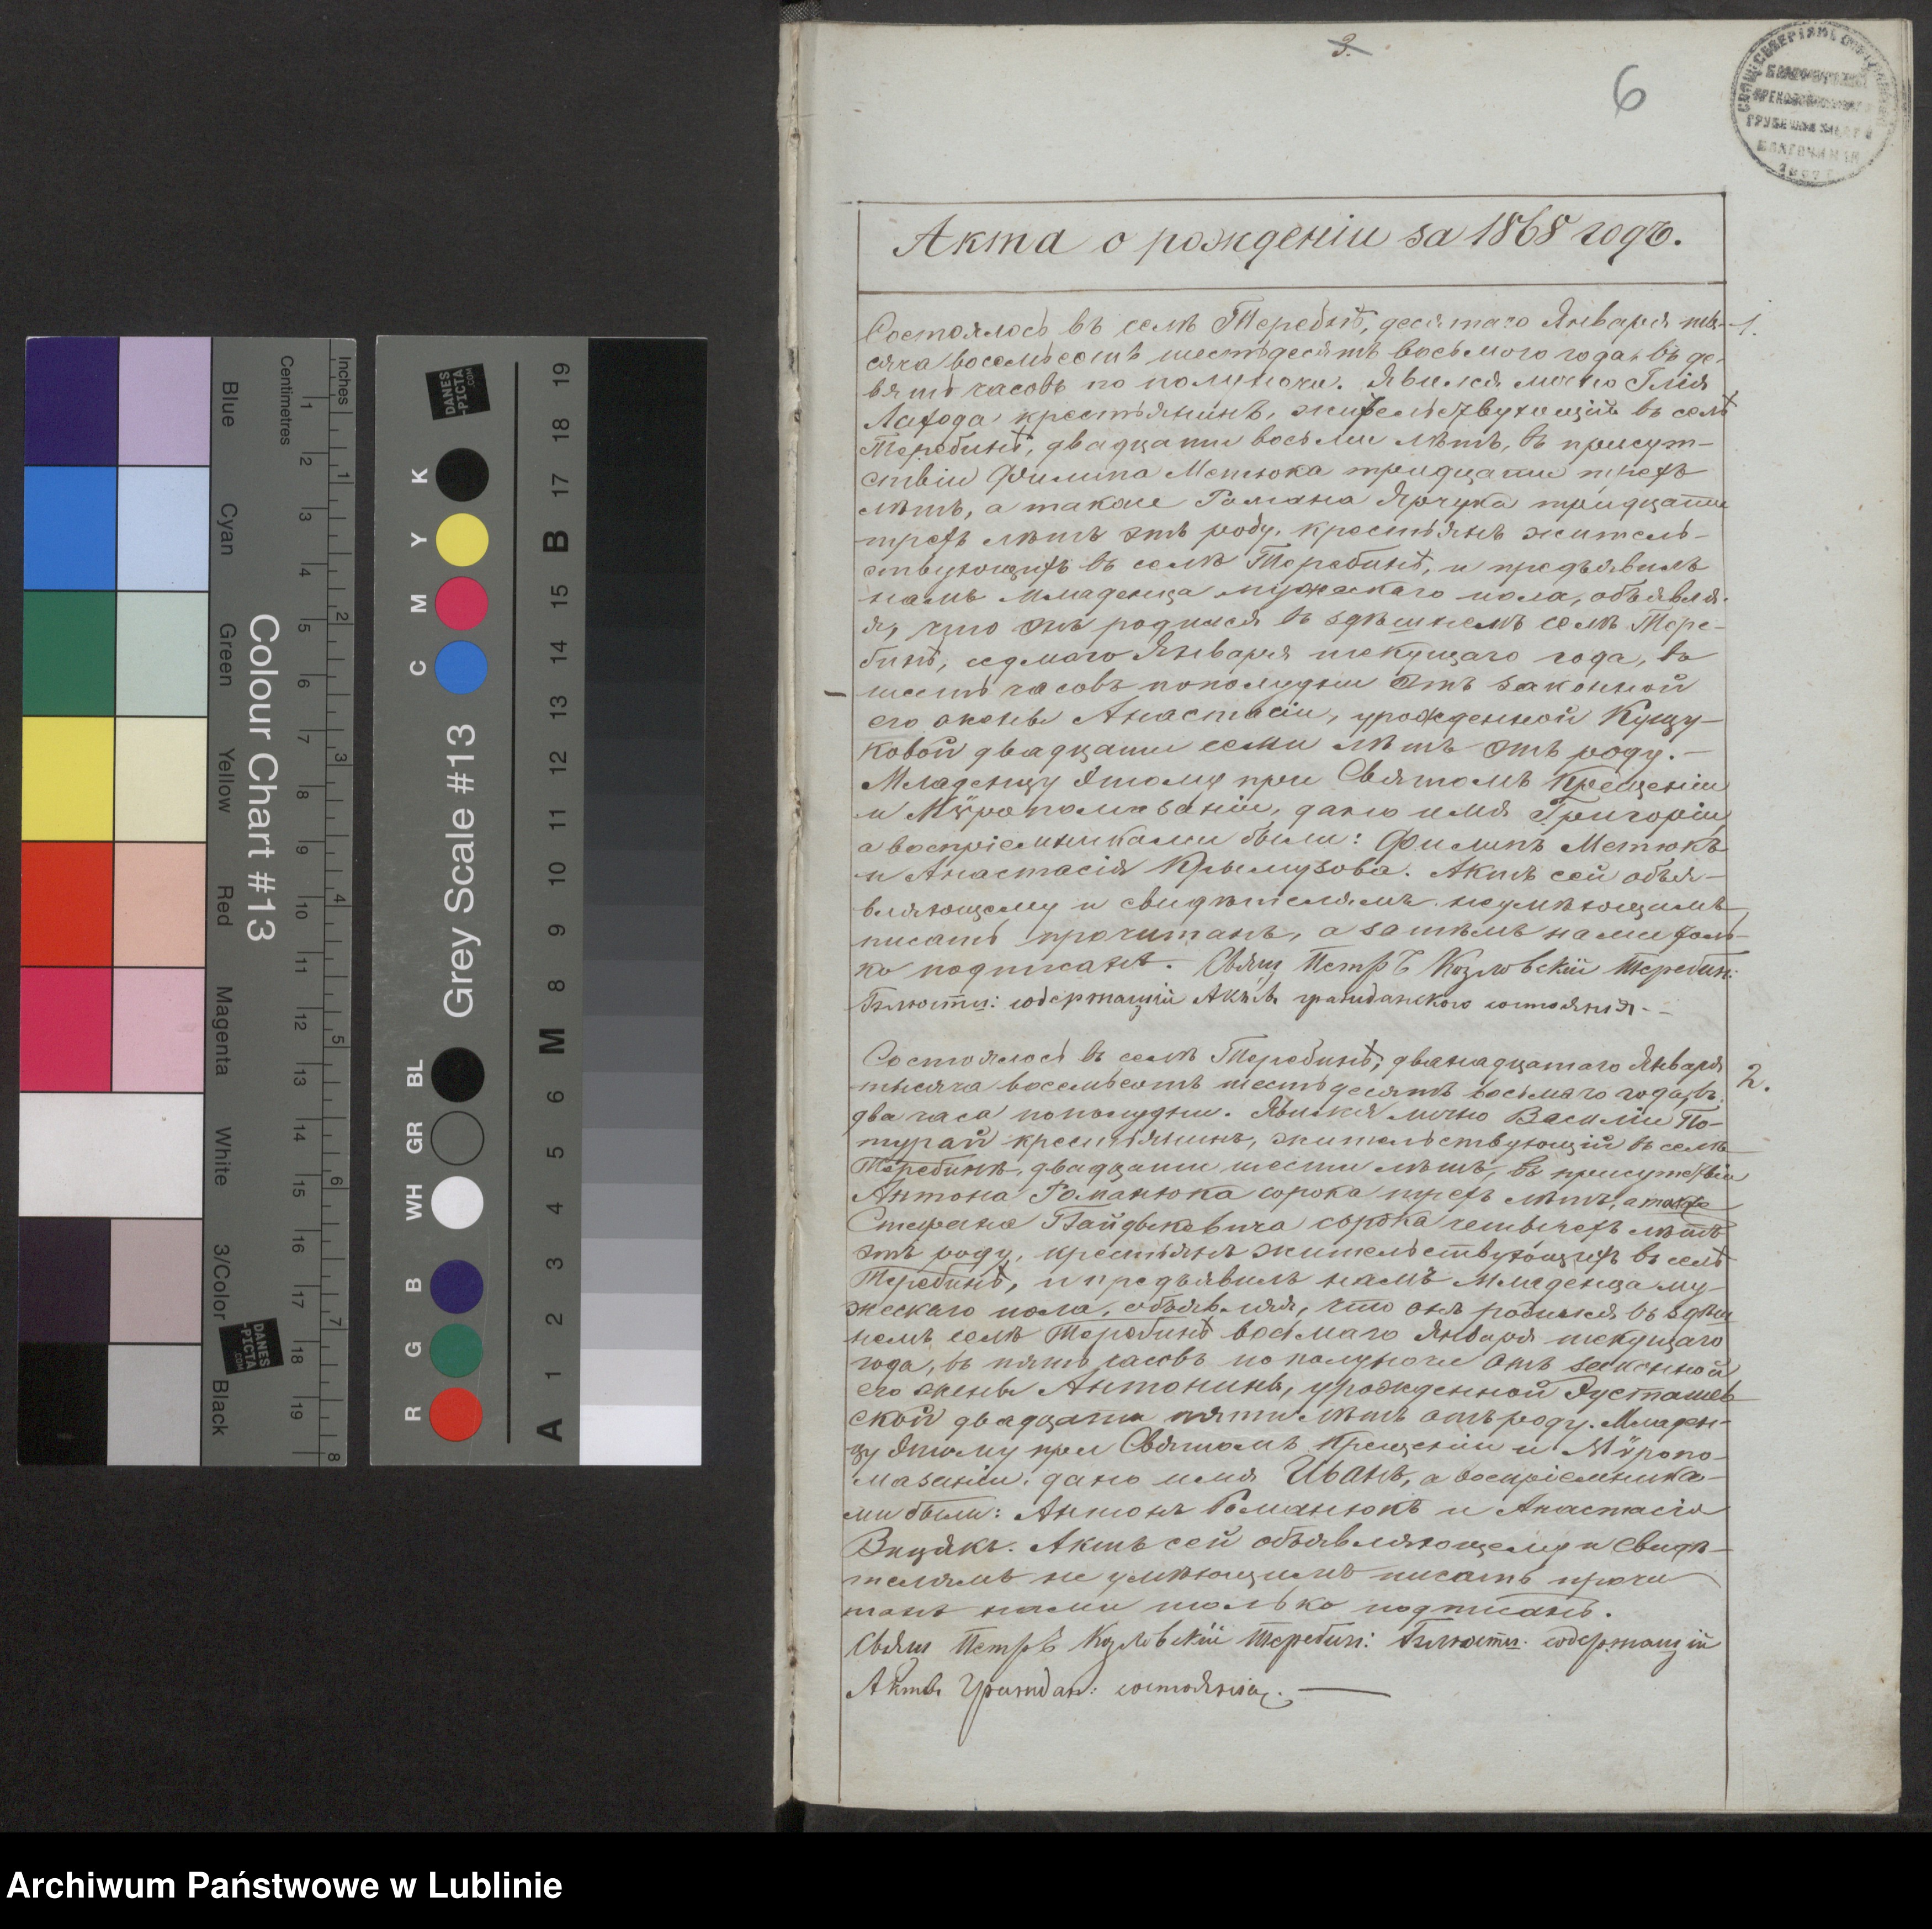 3.
6
Акта о рожденіи за 1868 годъ.
Состоялось въ селѣ Теребинѣ, десятаго Января ты- 1.
сяча восемьсотъ шестьдесятъ восьмого года, въ де-
вять часовъ по полуночи. Явился лично Илія
крестьянинъ, жительствующій въ селѣ
Теребинѣ, двадцати восьми лѣтъ, въ присут-
ствіи Филипа Метюка тридцати трехъ
лѣтъ, а также Романа Ярчука тридцати
трехъ лѣтъ отъ роду, крестьянъ житель-
ствующихъ въ селѣ Теребинѣ, и предъявилъ
намъ младенца мужескаго пола, объявля-
я, что онъ родился въ здѣшнемъ селѣ Тере-
бинѣ, седмаго Января текущаго года, въ
шесть часовъ пополудни отъ законной
его жены Анастасіи, урожденной Кущу-
ковой двадцати семи лѣтъ отъ роду. —
Младенцу этому при Святомъ Крещеніи
и Мѵропомазаніи, дано имя Григорій,
а воспріемниками были: Филипъ Метюкъ
и Анастасія Крымузова. Актъ сей объя-
вляющему и свидѣтелямъ неумѣющимъ
писать прочитанъ, а затѣмъ нами толь-
ко подписанъ. Свящ Петръ Козловскій Теребин:
содержащій Акты гражданского состоянія. -
Состоялось въ селѣ Теребинѣ, дванадцатаго Января 2.
тысяча восемьсотъ шестьдесятъ восьмаго года, въ
два часа пополудни. Явился лично Василій По-
турай крестьянинъ, жительствующій въ селѣ
Теребинѣ, двадцати шести лѣтъ, въ присутствіи
Антона Романюка сорока трехъ лѣтъ, а также
Стефана Байдыковича сорока четырехъ лѣтъ
отъ роду, крестьянъ жительствующихъ въ селѣ
Теребинѣ, и предъявилъ намъ младенца му-
жескаго пола, объявляя, что онъ родился въ здѣш
немъ селѣ Теребинѣ восьмаго Января текущаго
года, въ пять часовъ по полуночи отъ законной
его жены Антонины, урожденной
ской двадцати пяти лѣтъ отъ роду. Младен-
цу этому при Святомъ Крещеніи и Мѵропо-
мазаніи, дано имя Иванъ, а воспріемника-
ми были: Антонъ Романюкъ и Анастасія
Вицякъ. Актъ сей объявляющему и свидѣ-
телямъ не умѣющимъ писать прочи
танъ нами только подписанъ.
Свящ Петръ Козловскій Теребин: содержащій
Акты Граждан: состоянія. —
Inches
Centimetres
Colour Chart #13
Blue
Cyan
Green
Yellow
Red
Magenta
White
3/Color
Black
DANES
-PICTA
.COM
Grey Scale #13
R G B WH GR BL C M Y K
A 1 2 3 4 5 6 M 8 9 10 11 12 13 14 15 B 17 18 19
Archiwum Państwowe w Lublinie